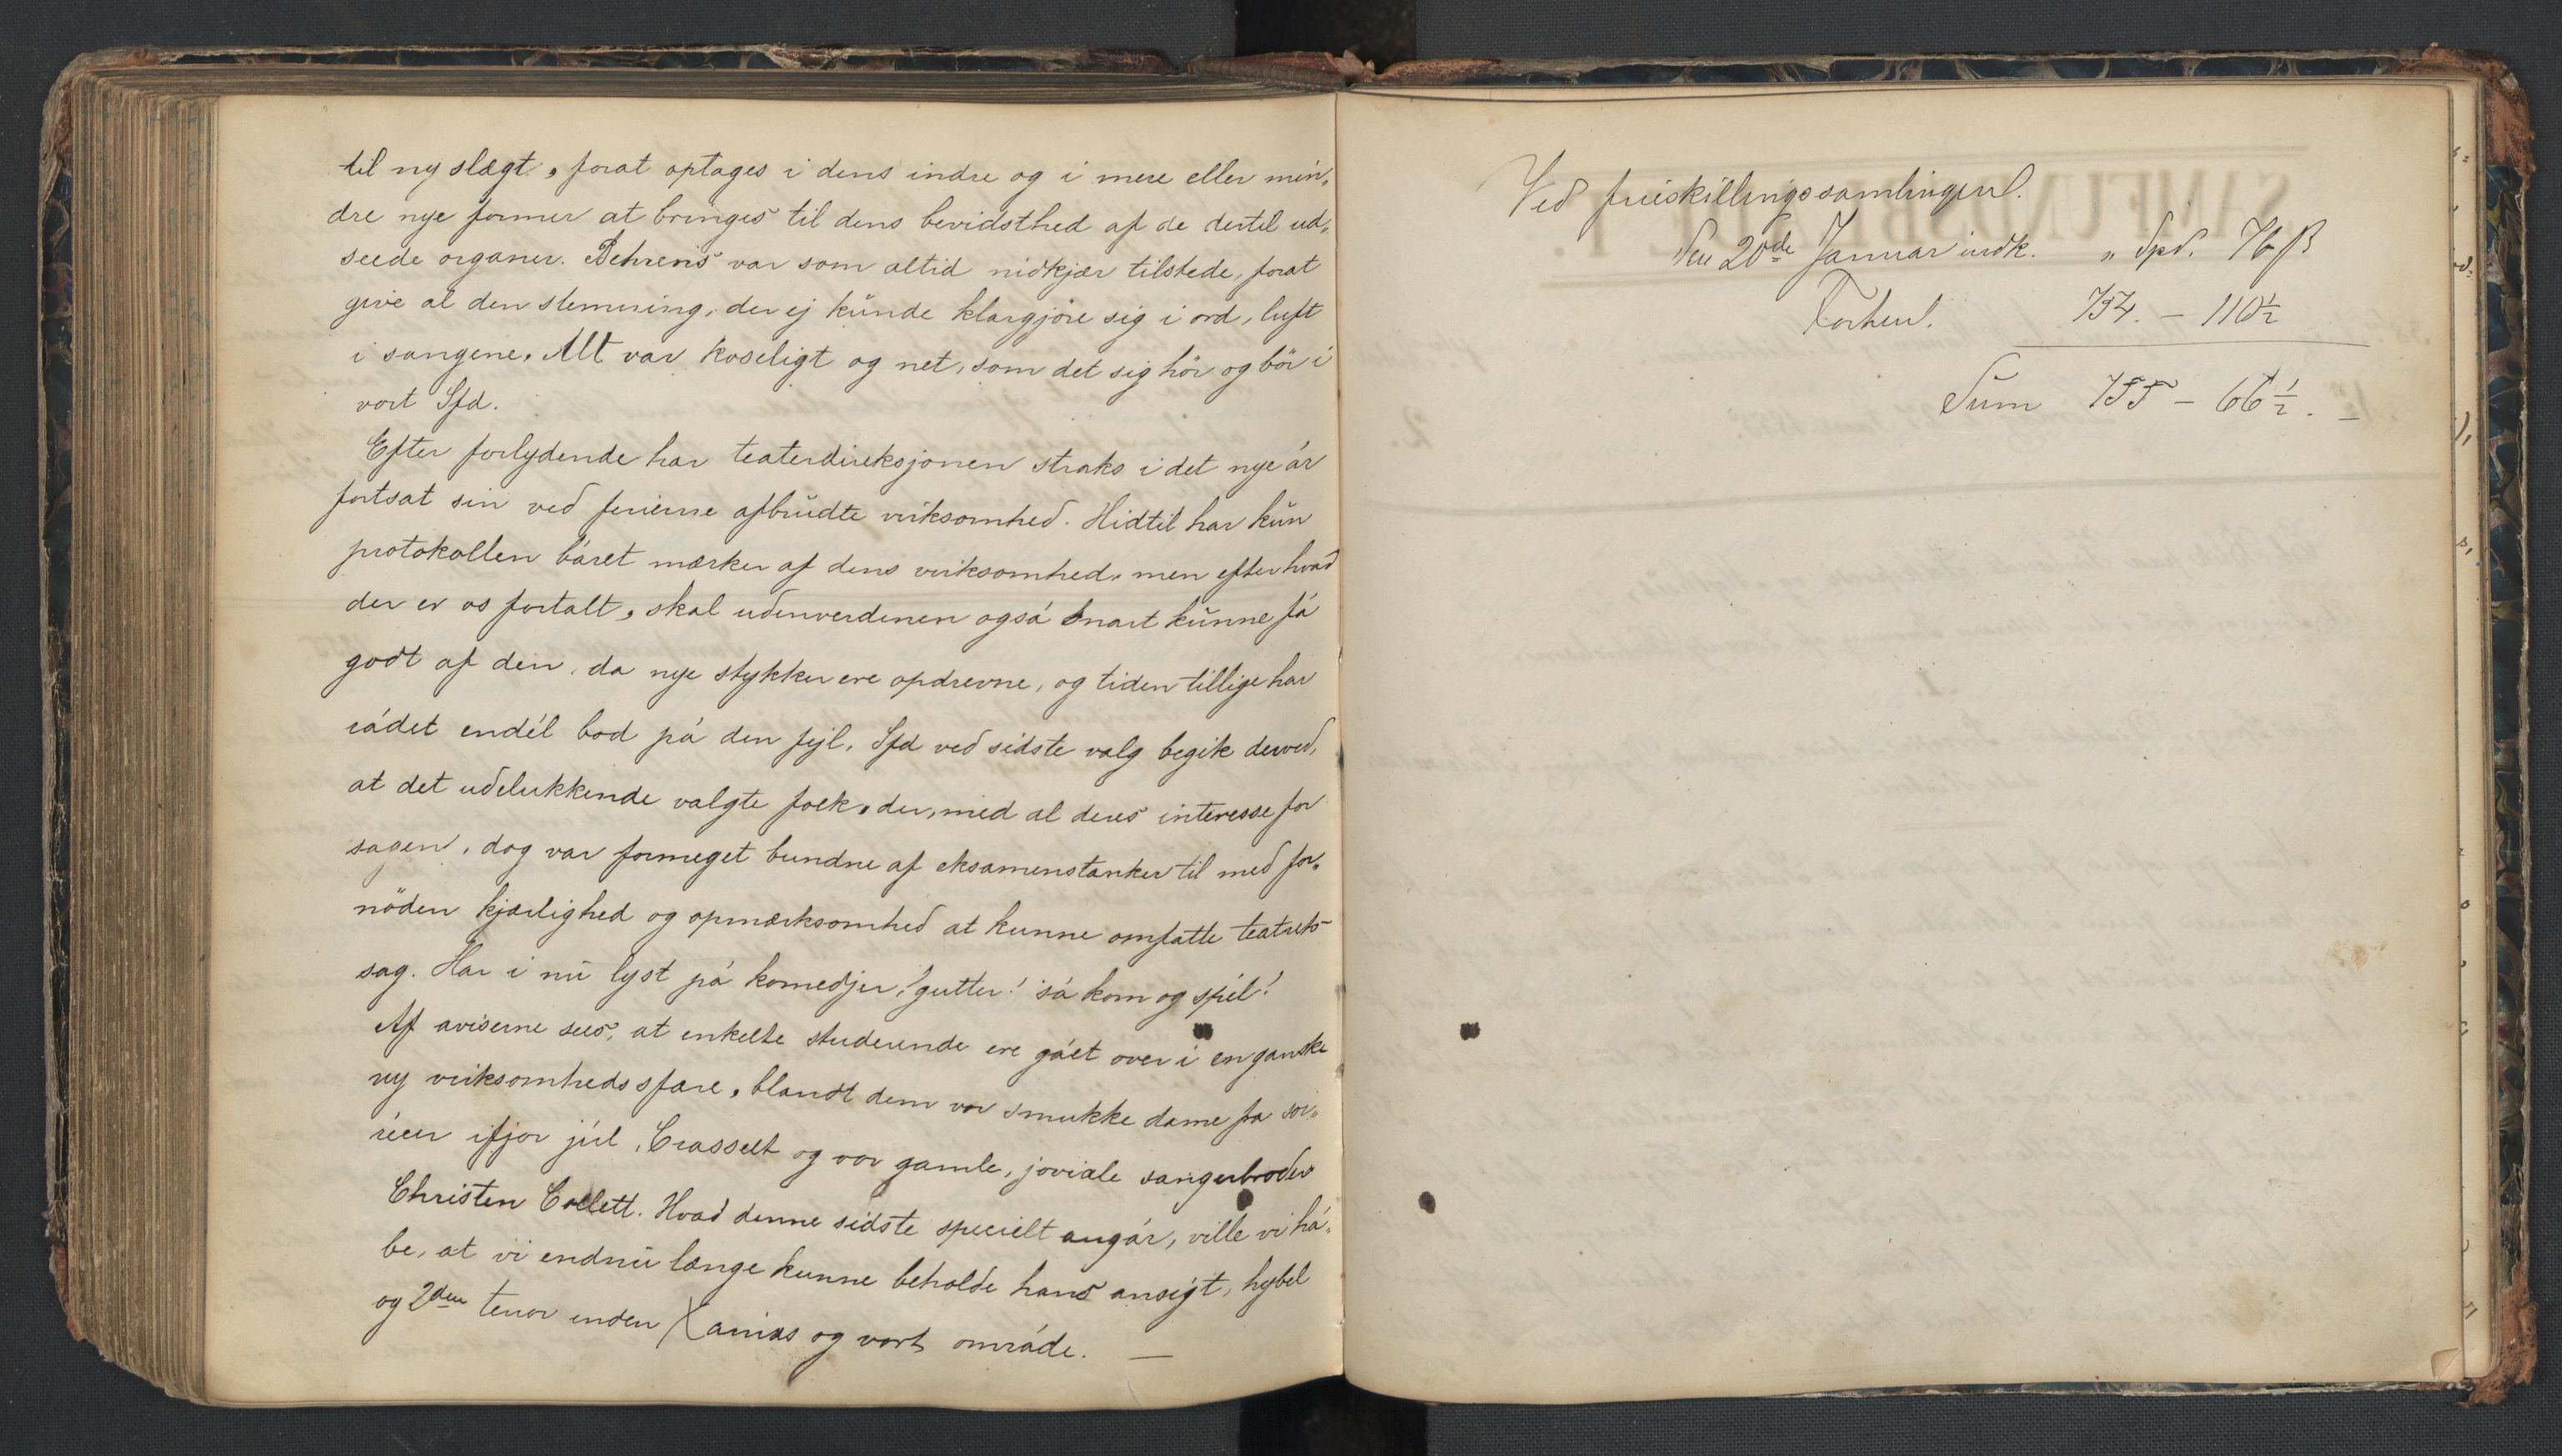 til ny slægt, forat optages i dens indre og i mere eller min„
dre nye former at bringes til dens bevidsthed af de dertil ud„
seede organer. Behrens var som altid nidkjær tilstede, forat
give al den stemning, der ej kunde klargjöre sig i ord, luft
i sangene. Alt var koseligt og net, som det sig hör og bör i
vort Sfd.
Efter forlydende har teaterdireksjonen straks i det nye år
fortsat sin ved ferierne afbrudte virksomhed. Hidtil har kun
protokollen båret mærker af dens virksomhed, men efter hvad
der er os fortalt, skal udenverdenen også snart kunne få
godt af den, da nye stykker ere opdrevne, og tiden tillige har
rådet endél bod på den fejl, Sfd ved sidste valg begik derved,
at det udelukkende valgte folk, der, med al deres interesse for
sagen, dog var formeget bundne af eksamenstanker til med for„
nöden kjærlighed og opmærksomhed at kunne omfatte teatrets
sag. Har i nu lyst på komedjer, gutter! så kom og spil!
Af aviserne sees, at enkelte studerende ere gået over i en ganske
ny virksomheds sfære, blandt dem vor smukke dame fra soi„
réen ifjor júl, Crasselt og vor gamle, joviale sangerbroder
Christen Collett. Hvad denne sidste specielt angår, ville vi hå„
be, at vi endnu længe kunne beholde hans ansigt, hybel
og 2den tenor inden Xanias og vort område. —
Ved friskillingssamlingen.
den 20de Januar indk. „ Spd. 76 β
Forhen. 754. – 110½
Sum 755 – 66½. –
SAMFUNDSBLADE